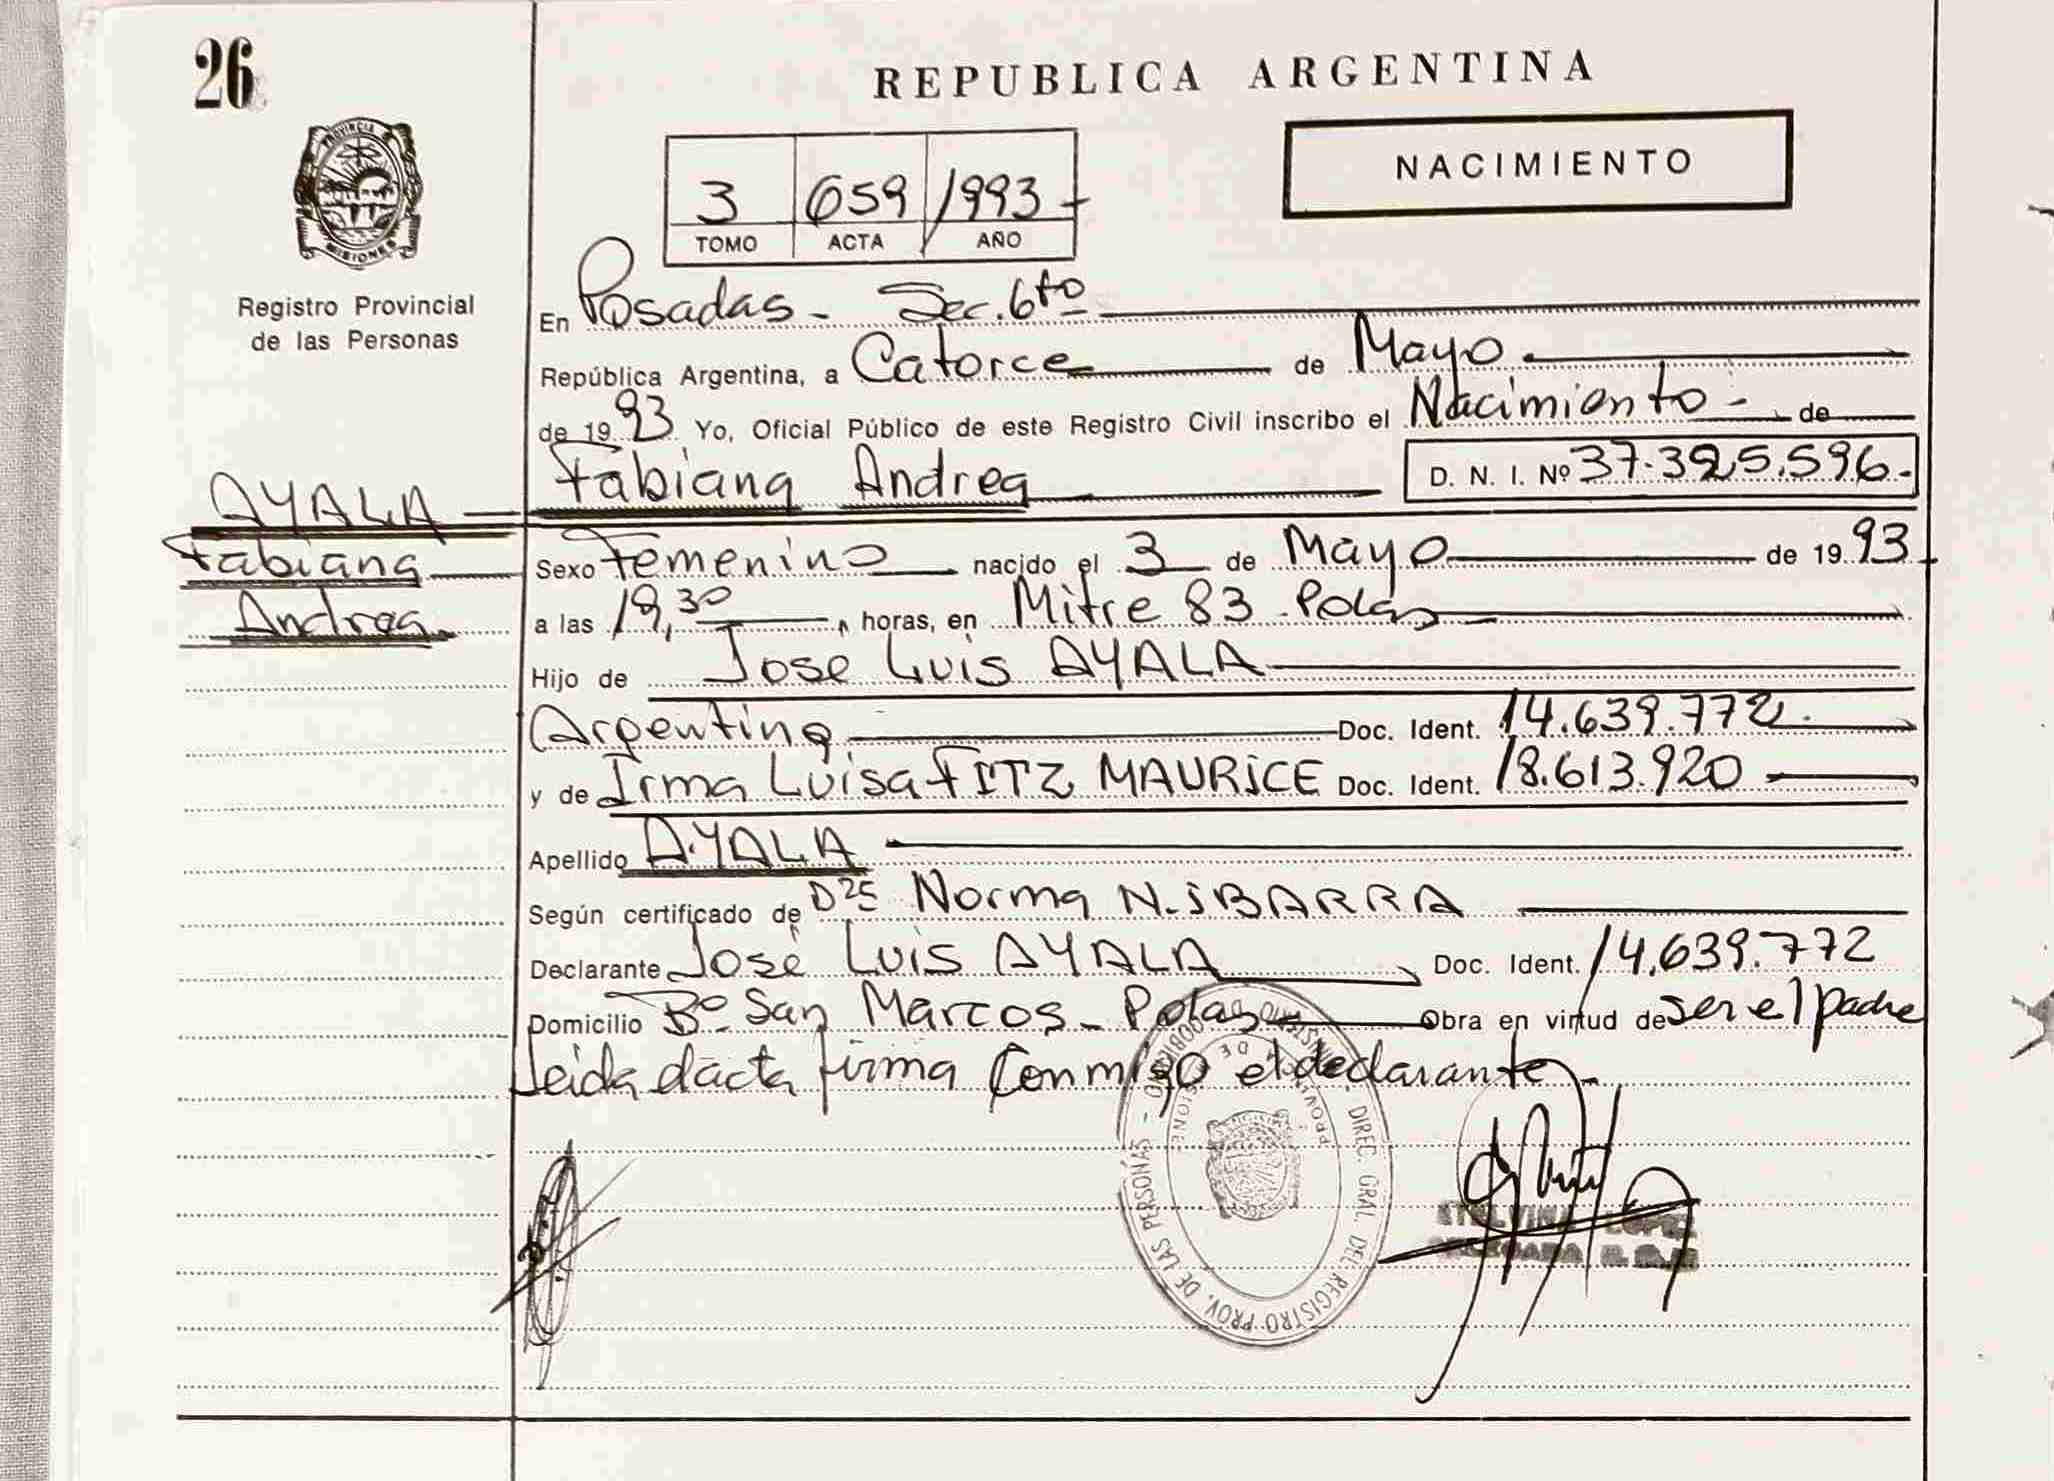 26
REPUBLICA ARGENTINA
NACIMIENTO
3 659 1993
TOMO ACTA AÑO
PROVINCIA MISIONES
Registro Provincial
de las Personas
En Posadas - Sec. 6to
República Argentina, a Catorce de Mayo
de 1993 Yo, Oficial Público de este Registro Civil inscribo el Nacimiento - de
Fabiana Andrea D. N. I. Nº 37.325.596.-
AYALA
Fabiana
Andrea
Sexo Femenino nacido el 3 de Mayo de 1993
a las 19,30 horas, en Mitre 83 - Pdas
Hijo de Jose Luis AYALA
Argentina Doc. Ident. 14.639.772.
y de Irma Luisa FITZ MAURICE Doc. Ident. 18.613.920
Apellido AYALA
Según certificado de Norma N. IBARRA
Declarante José Luis AYALA Doc. Ident. 14.639.772
Domicilio Bº San Marcos - Pdas Obra en virtud de ser el padre
Leida d acta firma conmigo el declarante -
DIREC. GRAL. DEL REGISTRO PROV. DE LAS PERSONAS - MINISTERIO DE GOBIERNO
PROVINCIA DE MISIONES